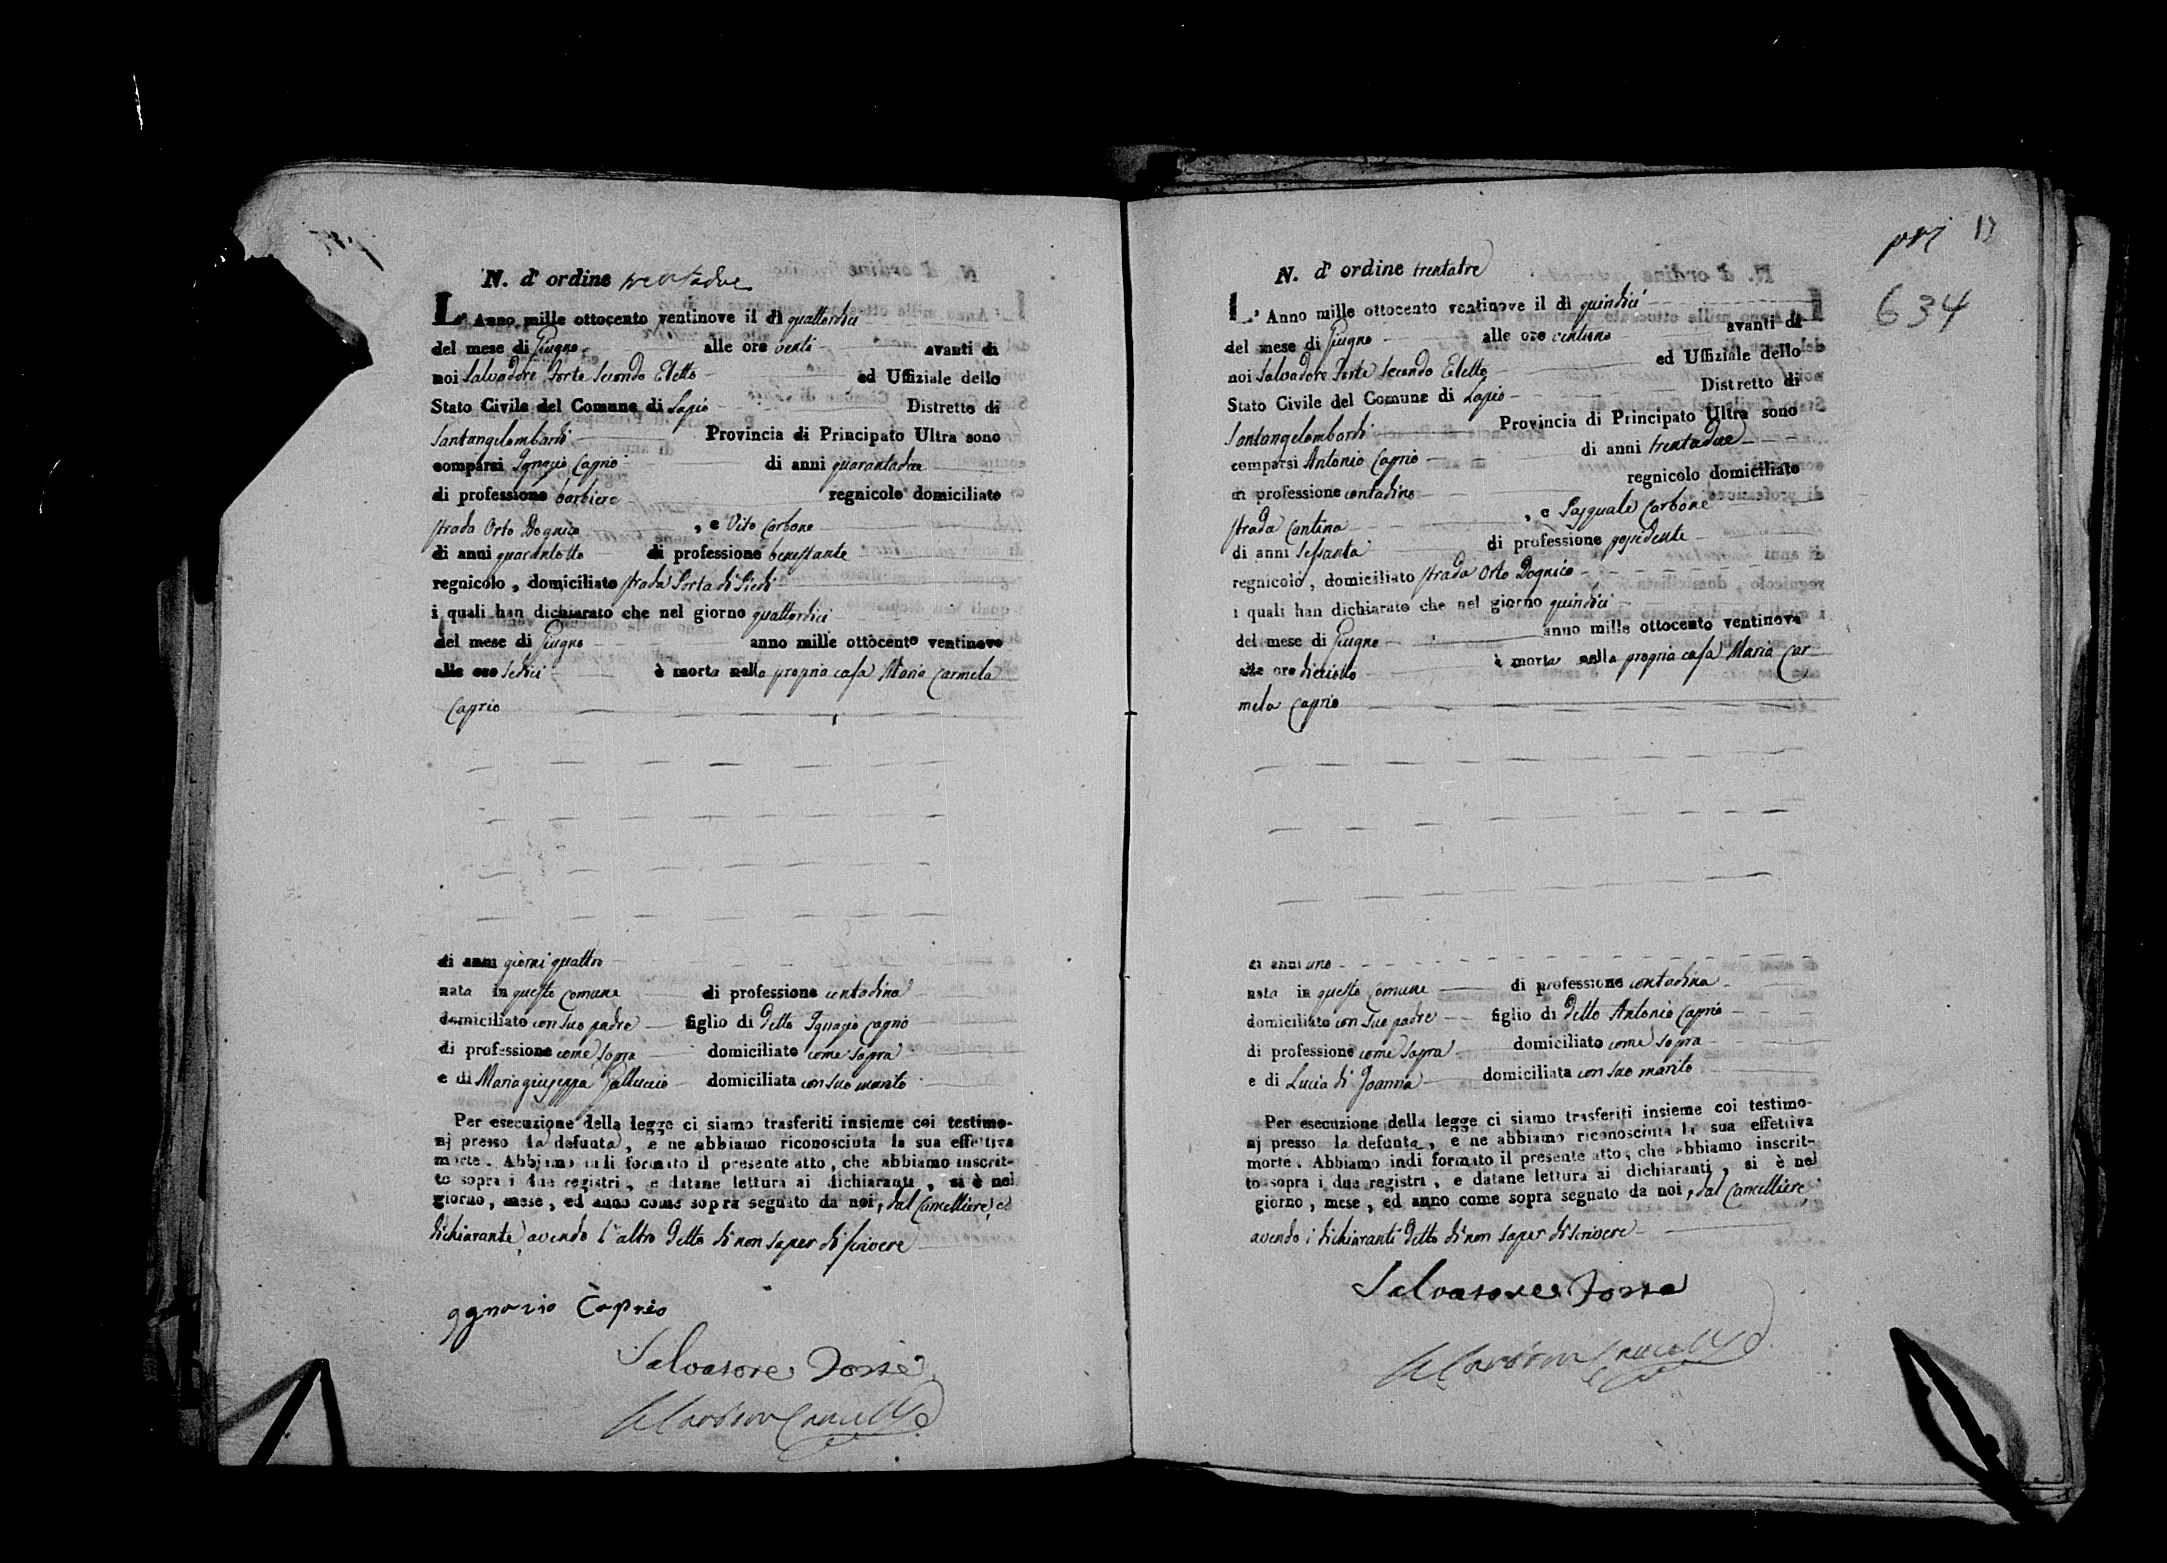 N. d' ordine trentadue
L' Anno mille ottocento ventinove il di quattordici
del mese di Giugno alle ore venti avanti di
noi Salvadore Forte Secondo Eletto ed Uffiziale dello
Stato Civile del Comune di Lapio Distretto di
Santangelombardi Provincia di Principato Ultra sono
comparsi Ignazio Caprio di anni quarantadue
di professione barbiere regnicolo domiciliato
strada Orto Dognico , e Vito Carbone
di anni quarantotto di professione benestante
regnicolo , domiciliato strada Porta di Piedi
i quali han dichiarato che nel giorno quattordici
del mese di Giugno anno mille ottocento ventinove
alle ore sedici è morta nella propria casa Maria Carmela
Caprio
di anni giorni quattro
nata in questo Comune di professione contadina
domiciliato con suo padre figlio di detto Ignazio Caprio
di professione come sopra domiciliato come sopra
e di Mariagiuseppa domiciliata con suo marito
Per esecuzione della legge ci siamo trasferiti insieme coi testimo-
nj presso la defunta, e ne abbiamo riconosciuta la sua effettiva
morte. Abbiamo indi formato il presente atto, che abbiamo inscrit-
to sopra i due registri, e datane lettura ai dichiaranti, si è nel
giorno, mese, ed anno come sopra segnato da noi, dal Cancelliere, e
dichiarante, avendo l'altro detto di non saper di scrivere
Ignazio Caprio
Salvatore Forte
pri 13
634
N. d' ordine trentatre
L' Anno mille ottocento ventinove il di quindici
del mese di Giugno alle ore ventuno avanti di
noi Salvadore Forte Secondo Eletto ed Uffiziale dello
Stato Civile del Comune di Lapio Distretto di
Santangelombardi Provincia di Principato Ultra sono
comparsi Antonio Caprio di anni trentadue
di professione contadino regnicolo domiciliato
strada Cantina , e Pasquale Carbone
di anni sessanta di professione possidente
regnicolo, domiciliato strada Orto Dognico
i quali han dichiarato che nel giorno quindici
del mese di Giugno anno mille ottocento ventinove
alle ore dieciotto è morta nella propria casa Maria Car-
mela Caprio
di anni uno
nata in questo Comune di professione contadina
domiciliato con suo padre figlio di detto Antonio Caprio
di professione come sopra domiciliato come sopra
e di Lucia di Joanna domiciliata con suo marito
Per esecuzione della legge ci siamo trasferiti insieme coi testimo-
nj presso la defunta, e ne abbiamo riconosciuta la sua effettiva
morte. Abbiamo indi formato il presente atto, che abbiamo inscrit-
to sopra i due registri, e datane lettura ai dichiaranti, si è nel
giorno, mese, ed anno come sopra segnato da noi, dal Cancelliere
avendo i dichiaranti detto di non saper di scrivere
Salvatore Forte